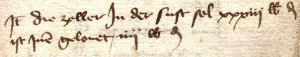 It die zoller In der sust sol xxxiiii lb d
ist Jm̄ gelonet iiii lb d